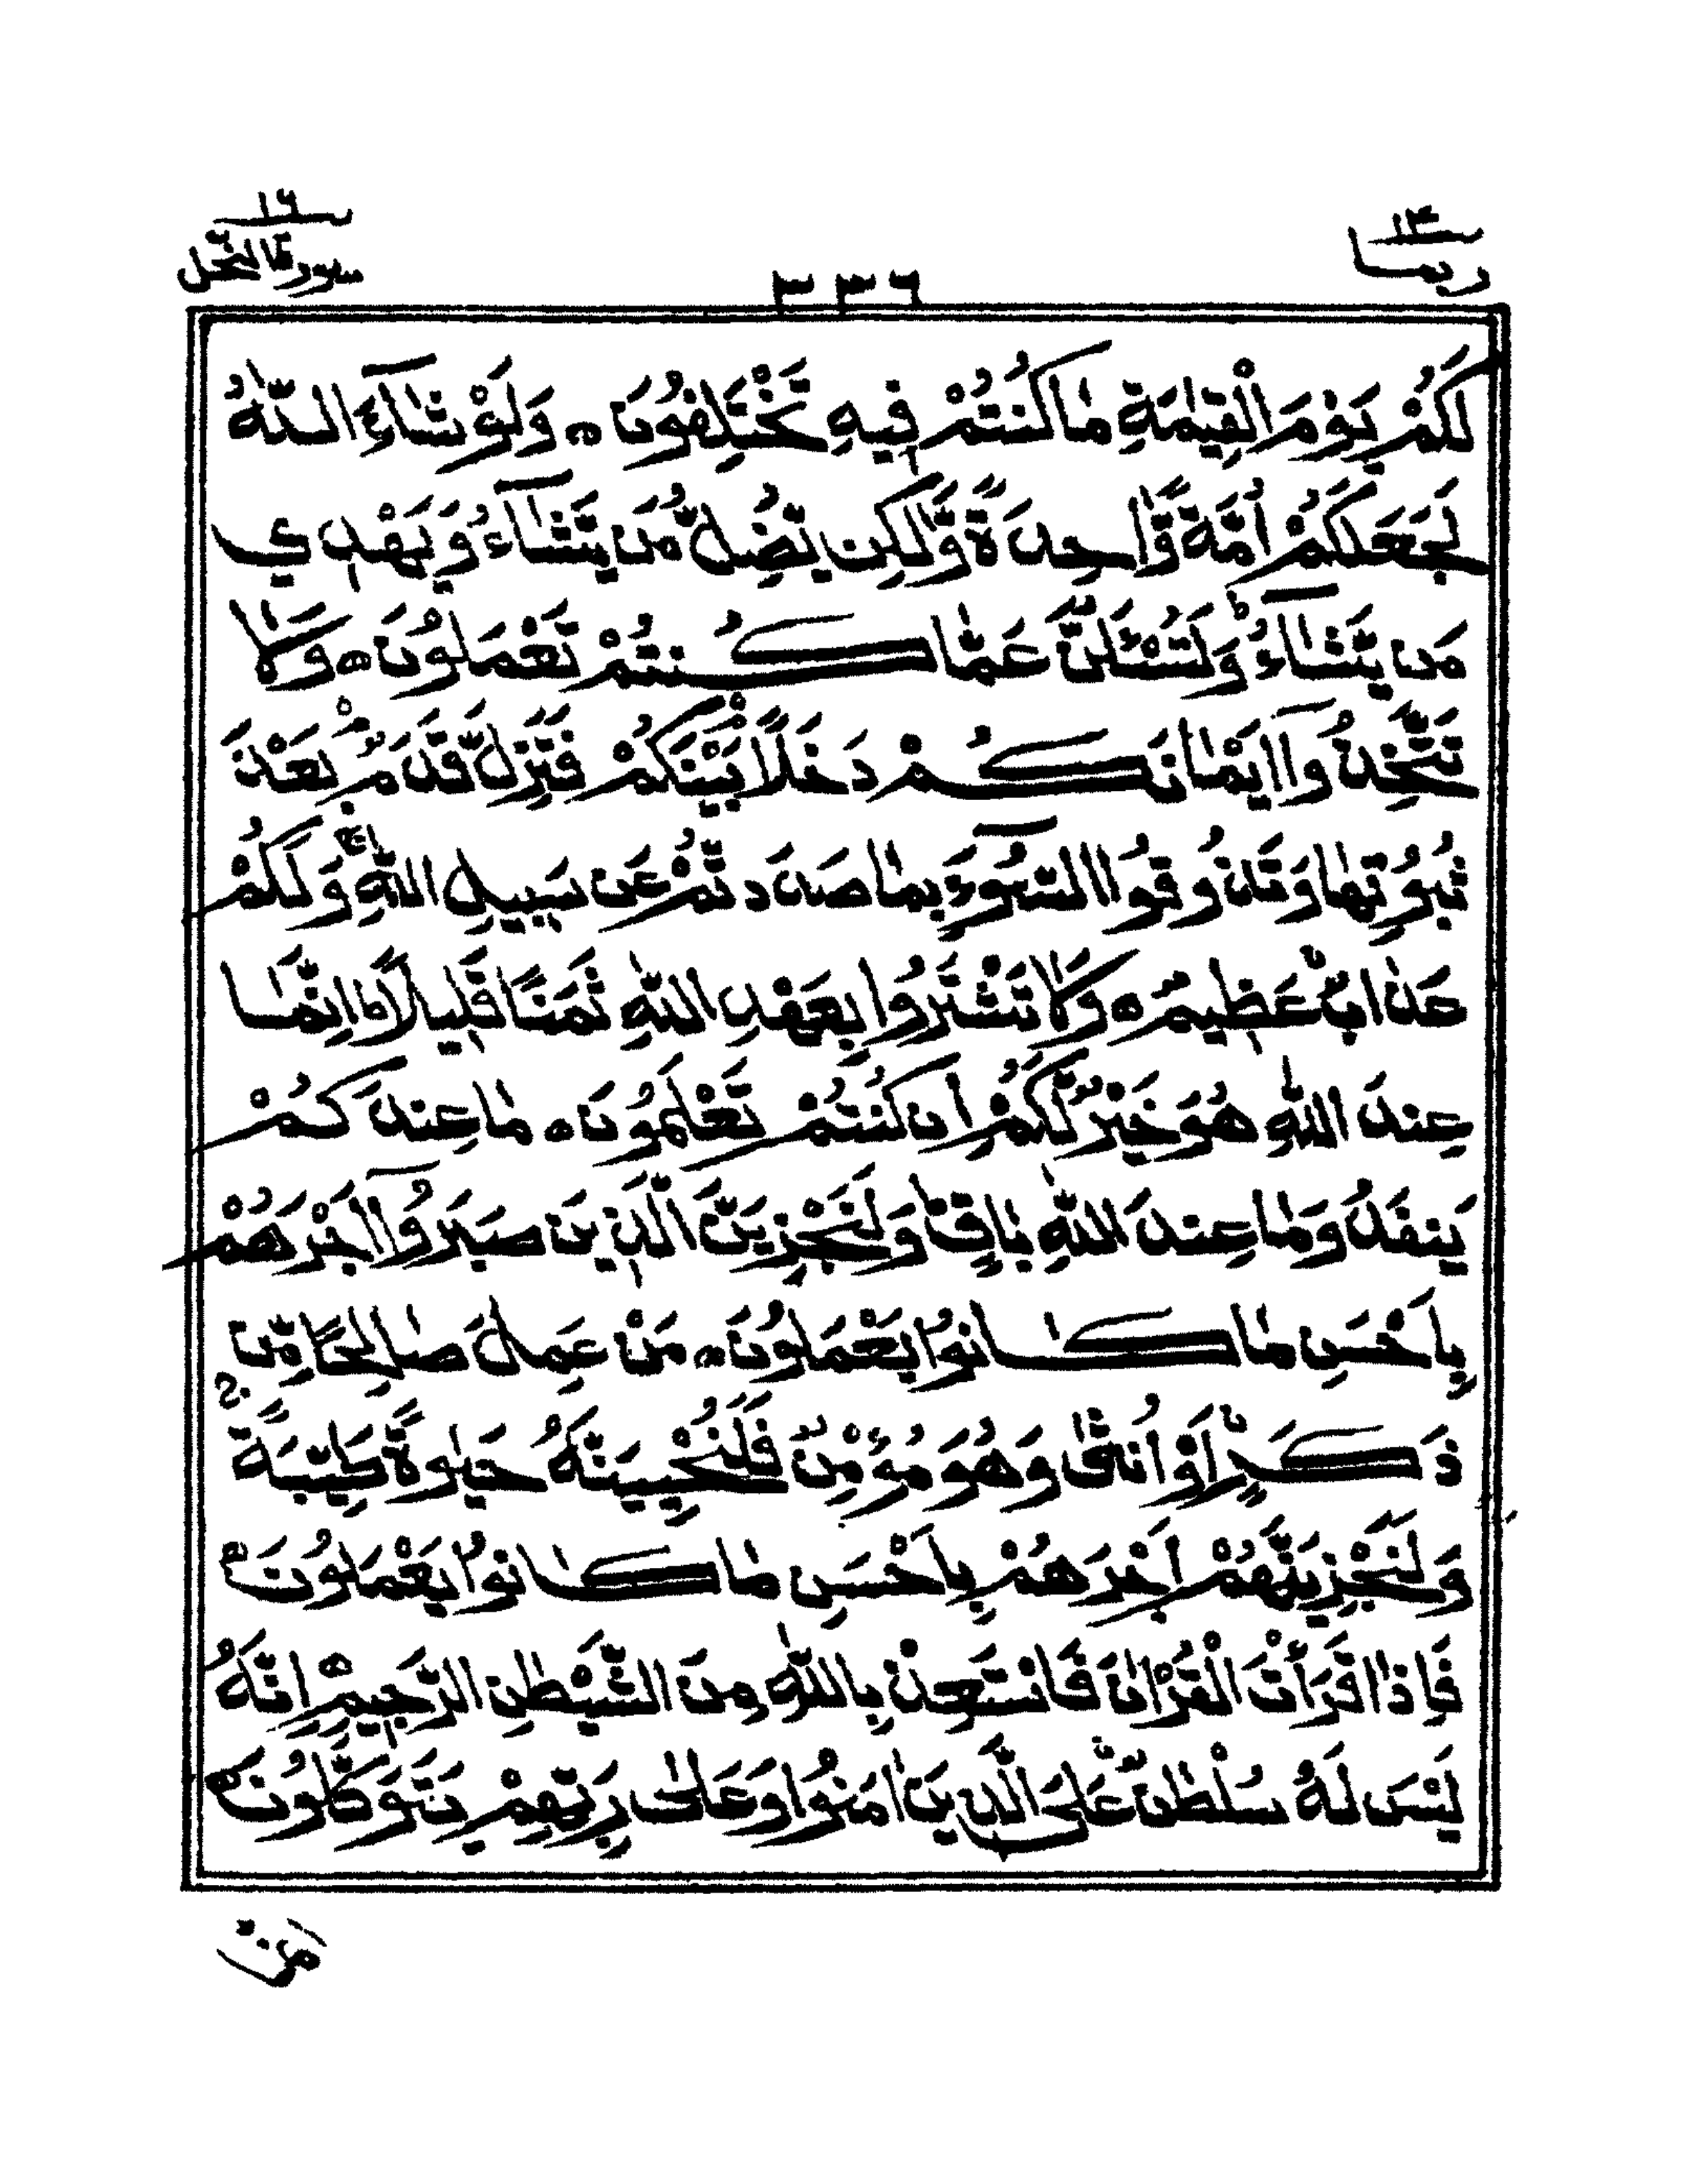 ربما ١٤
٣٣٦
سورة النحل ١٦
لَكُمْ يَوْمَ الْقِيٰمَةِ مَا كُنْتُمْ فِيهِ تَخْتَلِفُونَ ۝ وَلَوْ شَآءَ اللّٰهُ
لَجَعَلَكُمْ أُمَّةً وَّاحِدَةً وَّلٰكِن يُّضِلُّ مَن يَّشَآءُ وَيَهْدِي
مَن يَّشَآءُ ؕ وَلَتُسْـَٔلُنَّ عَمَّا كُنتُمْ تَعْمَلُونَ ۝ وَلَا
تَتَّخِذُوٓا اَيْمَانَكُمْ دَخَلًاۢ بَيْنَكُمْ فَتَزِلَّ قَدَمٌۢ بَعْدَ
ثُبُوتِهَا وَتَذُوقُوا السُّوٓءَ بِمَا صَدَدتُّمْ عَن سَبِيلِ اللّٰهِ ۚ وَلَكُمْ
عَذَابٌ عَظِيمٌ ۝ وَلَا تَشْتَرُوا بِعَهْدِ اللّٰهِ ثَمَنًا قَلِيلًا ؕ اِنَّمَا
عِندَ اللّٰهِ هُوَ خَيْرٌ لَّكُمْ اِن كُنتُمْ تَعْلَمُونَ ۝ مَا عِندَكُمْ
يَنفَدُ وَمَا عِندَ اللّٰهِ بَاقٍ ؕ وَلَنَجْزِيَنَّ الَّذِينَ صَبَرُوٓا اَجْرَهُمْ
بِاَحْسَنِ مَا كَانُوا يَعْمَلُونَ ۝ مَنْ عَمِلَ صَالِحًا مِّن
ذَكَرٍ اَوْ اُنثٰى وَهُوَ مُؤْمِنٌ فَلَنُحْيِيَنَّهُ حَيٰوةً طَيِّبَةً ۚ
وَلَنَجْزِيَنَّهُمْ اَجْرَهُمْ بِاَحْسَنِ مَا كَانُوا يَعْمَلُونَ ۝
فَاِذَا قَرَأْتَ الْقُرْاٰنَ فَاسْتَعِذْ بِاللّٰهِ مِنَ الشَّيْطٰنِ الرَّجِيمِ ۝ اِنَّهُ
لَيْسَ لَهُ سُلْطٰنٌ عَلَى الَّذِينَ اٰمَنُوا وَعَلٰى رَبِّهِمْ يَتَوَكَّلُونَ ۝